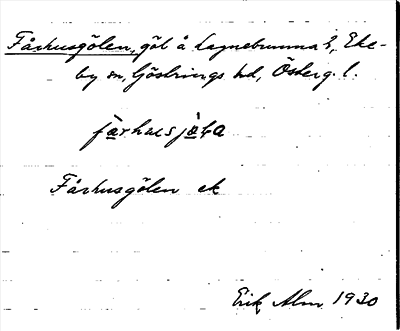 Fårhusgölen, göl å Lagnebrunna 2, Eke-
by sn, Göstrings hd, Österg. l.
Fårhusgölen ek
Erik Alm 1930